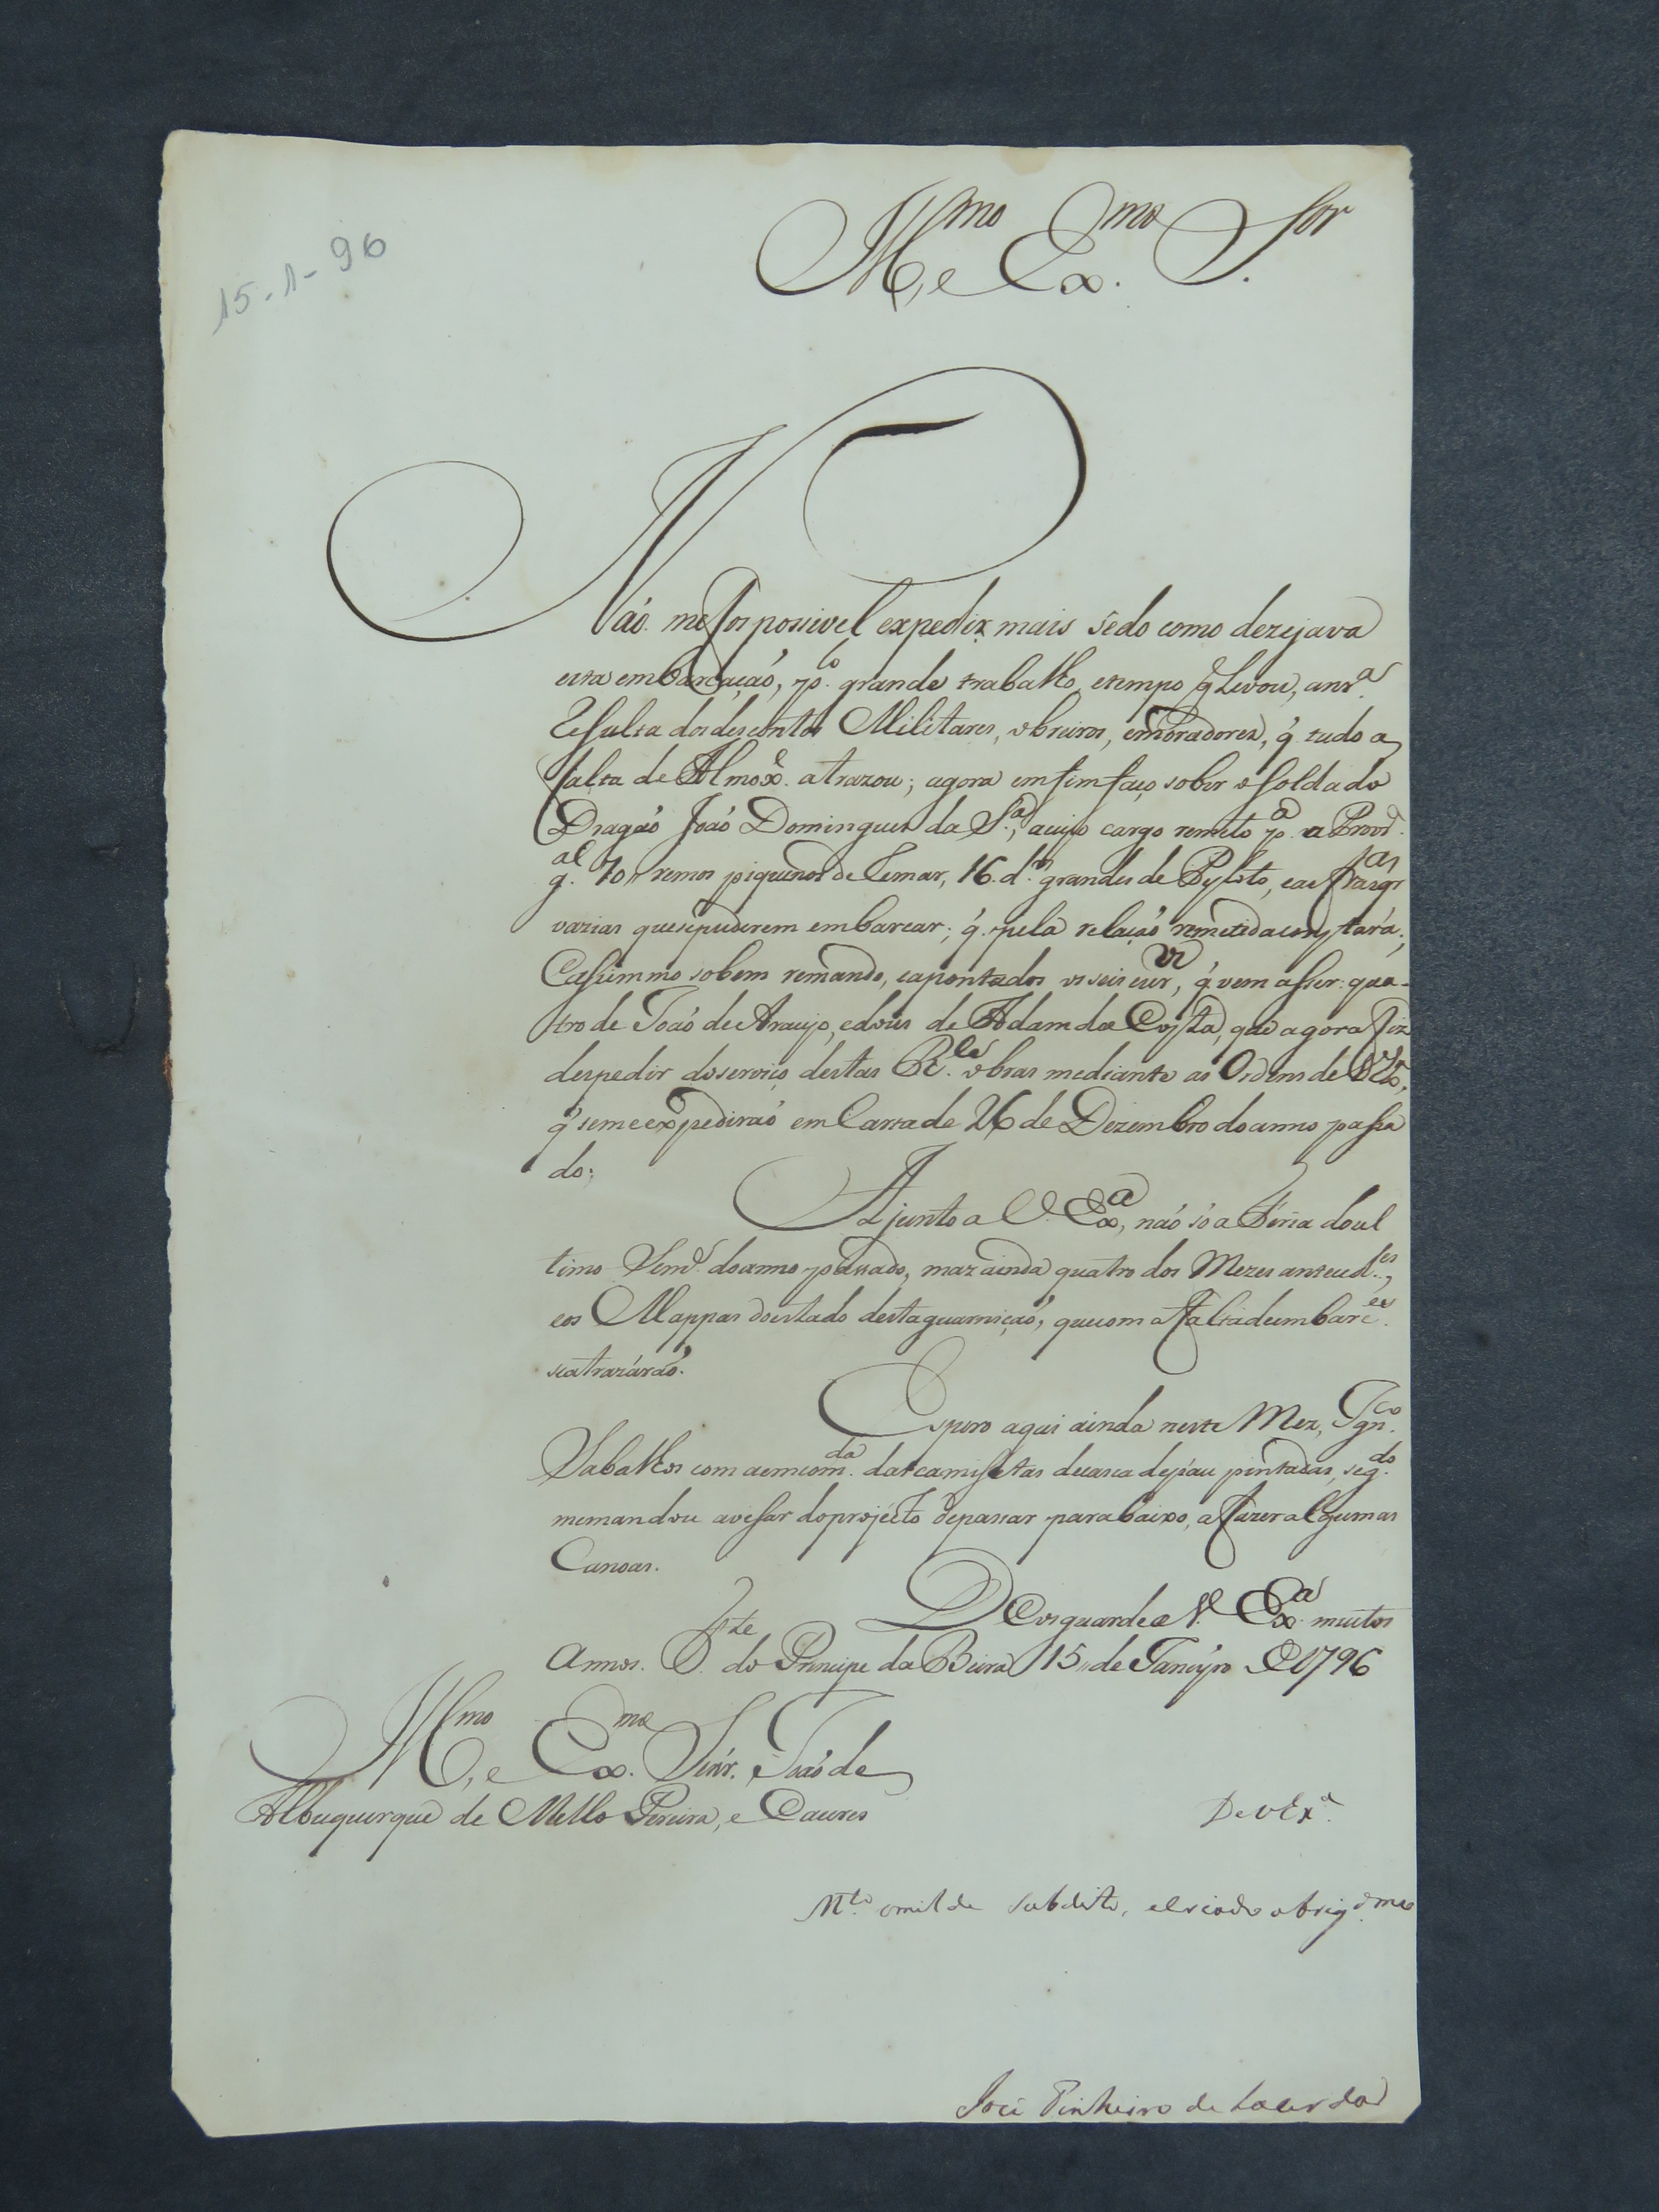 15-1-96
Ill.mo e Ex.mo S.or
Não me foi possivel expedir mais sedo como dezejava
esta embarcação, p.lo grande trabalho, e tempo q̃ Levou,
Resulta dos descontos Militares, obreiros, e moradores, q̃ tudo a
falta de Almox.e atrazou; agora em fim faço sobir o Soldado
Dragaõ Joaõ Domingues da S.a, a cujo cargo remeto p.a a Prov.
g.al 70,, remos piquenos de Remar, 16. d.os grandes de Pyloto, e as
varias que se puderem embarcar; q̃. pela relaçaõ remetida constará;
E assim mo sobem remando, e apontados os seis, q̃ vem asser: qua-
tro de Joaõ de Araujo, e dous de Adam da Costa, que agora fiz
despedir do serviço destas R.es obras mediante as Ordens de V Ex.a,
q̃ se me expediraõ em Carta de 26 de Dezembro do anno passa
do;
Adjunto a V. Ex.a, naõ só a Féria do ul
timo do anno passado, maz ainda quatro dos Mezes anteced.es,
e os Mappas do estado desta guarniçaõ, que com a falta de embarc.es
se atrazáraõ.
Espero aqui ainda neste Mez, Ign.co
Sabalhos com a emcom.da das camisetas de casca de páu pintadas, seg.do
me mandou avisar do projécto de passar para baixo, a fazer algumas
Canoas.
Deos guarde a V. Ex.a muitos
Annos. F.te do Principe da Beira 15,, de Janeyro de 1796
Ill.mo e Ex.mo Senr. Joaõ de
Albuquerque de Mello Pereira, e Caceres
De V Ex.a
M.to omilde subdito, e criado obrig.dmo
José Pinheiro de Lacerda